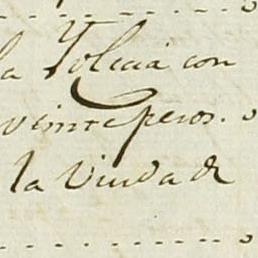 la Policia con
veinte pesos.
la Viuda de